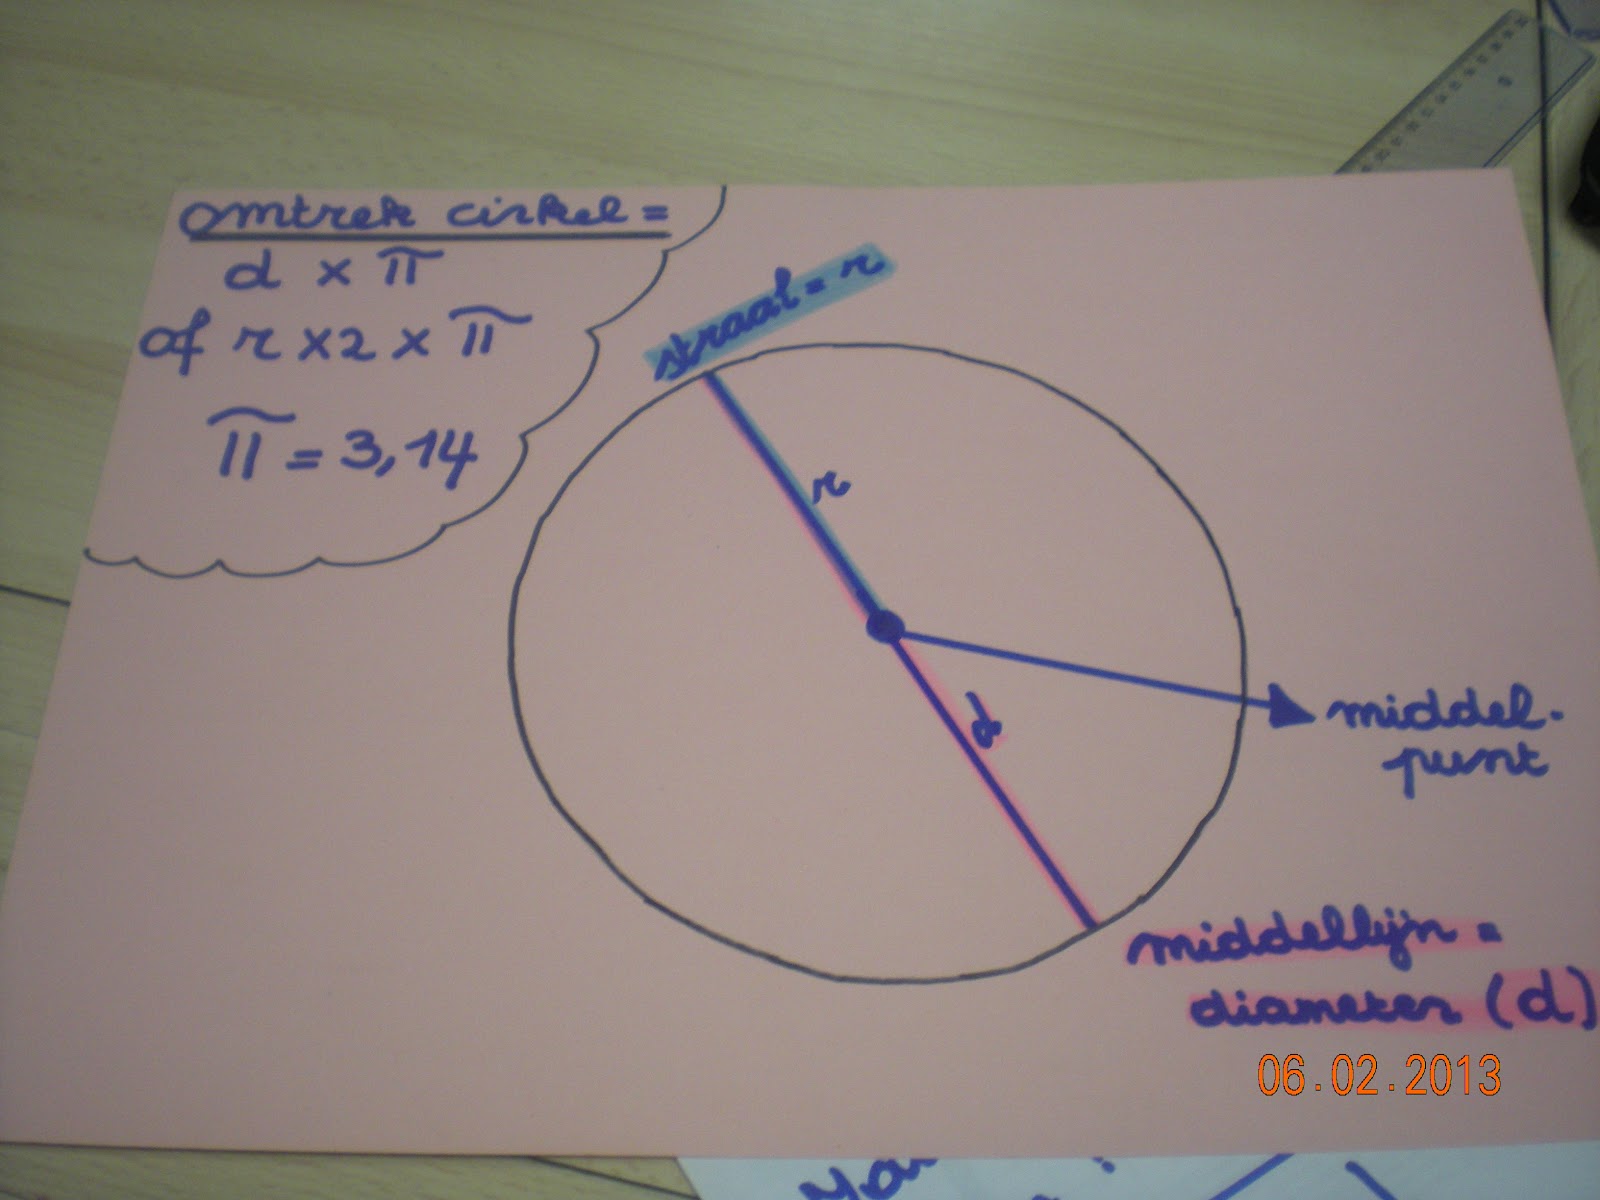 omtrek cirkel =
d x π
of r x 2 x π
π = 3,14
straal = r
r
d
middel-
punt
middellijn =
diameter (d)
06.02.2013